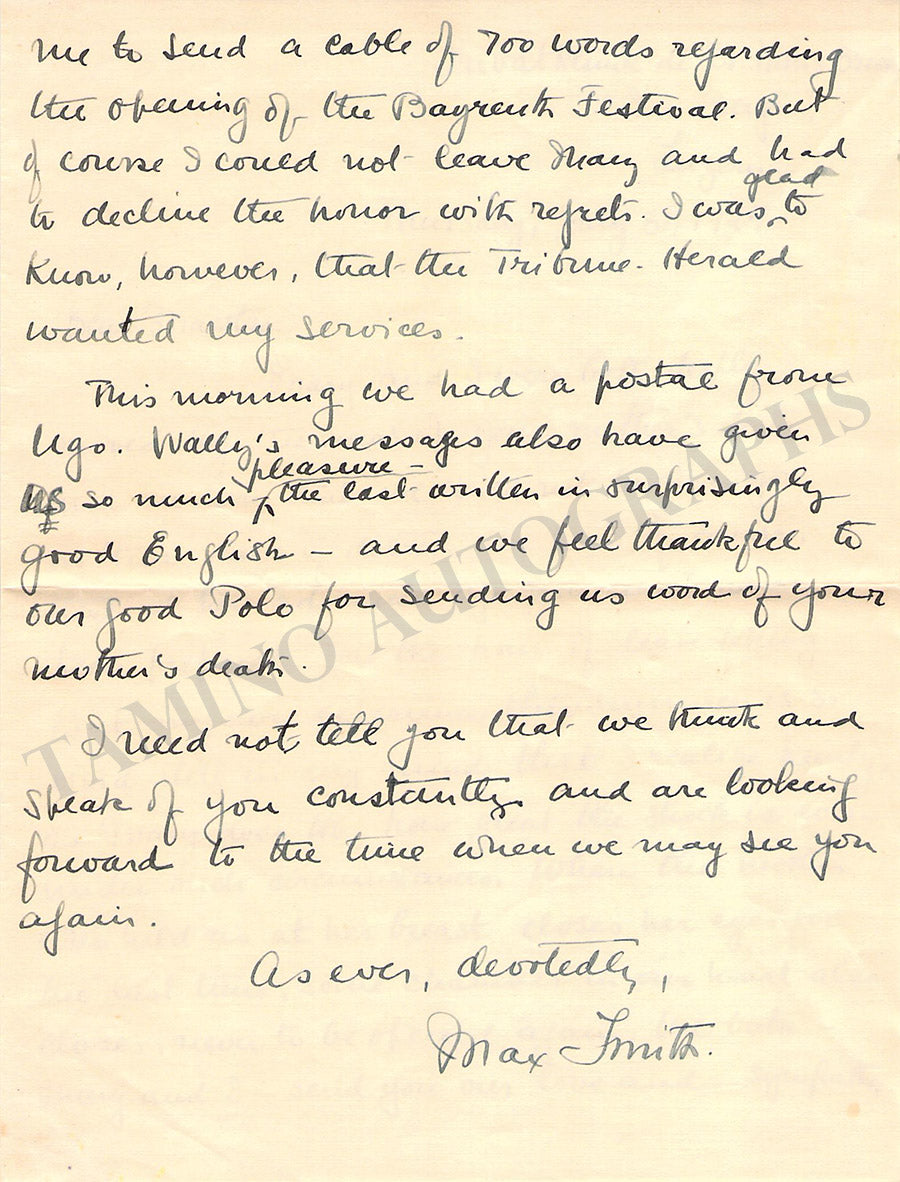 me to send a cable of 700 words regarding
the opening of the Bayreuth Festival. But
of course I could not leave Mary and had
to decline the honor with regrets. I was glad to
know, however, that the Tribune-Herald
wanted my services.
This morning we had a postal from
Ugo. Wally's messages also have given
us so much pleasure – the last written in surprisingly
good English – and we feel thankful to
our good Polo for sending us word of your
mother's death.
I need not tell you that we think and
speak of you constantly, and are looking
forward to the time when we may see you
again.
As ever, devotedly,
Max Smith.
TAMINO AUTOGRAPHS